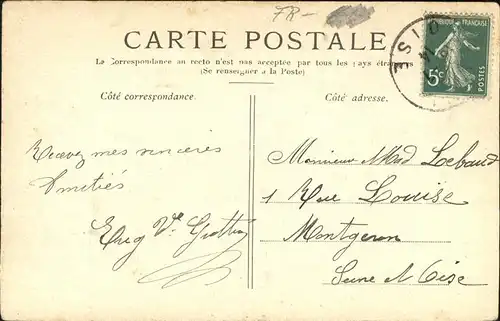 FR-
CARTE POSTALE
La Correspondance au recto n'est pas acceptée par tous les pays étrangers
(Se renseigner à la Poste)
Côté correspondance.
Côté adresse.
RÉPUBLIQUE FRANÇAISE
5c
POSTES
OISE
Recevez mes sincères
Amitiés
Monsieur Lebaud
1 Rue Louise
Montgeron
Seine et Oise